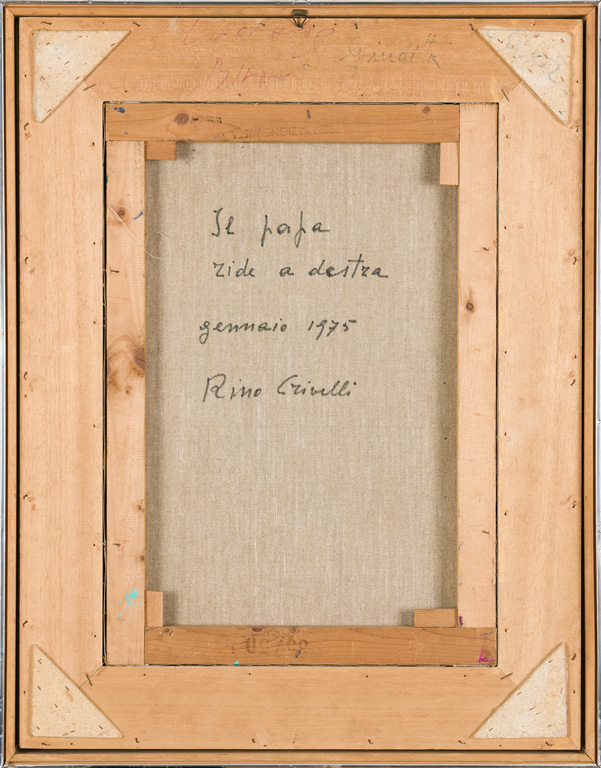 Giuditta
Il papa
ride a destra
gennaio 1975
Rino Crivelli